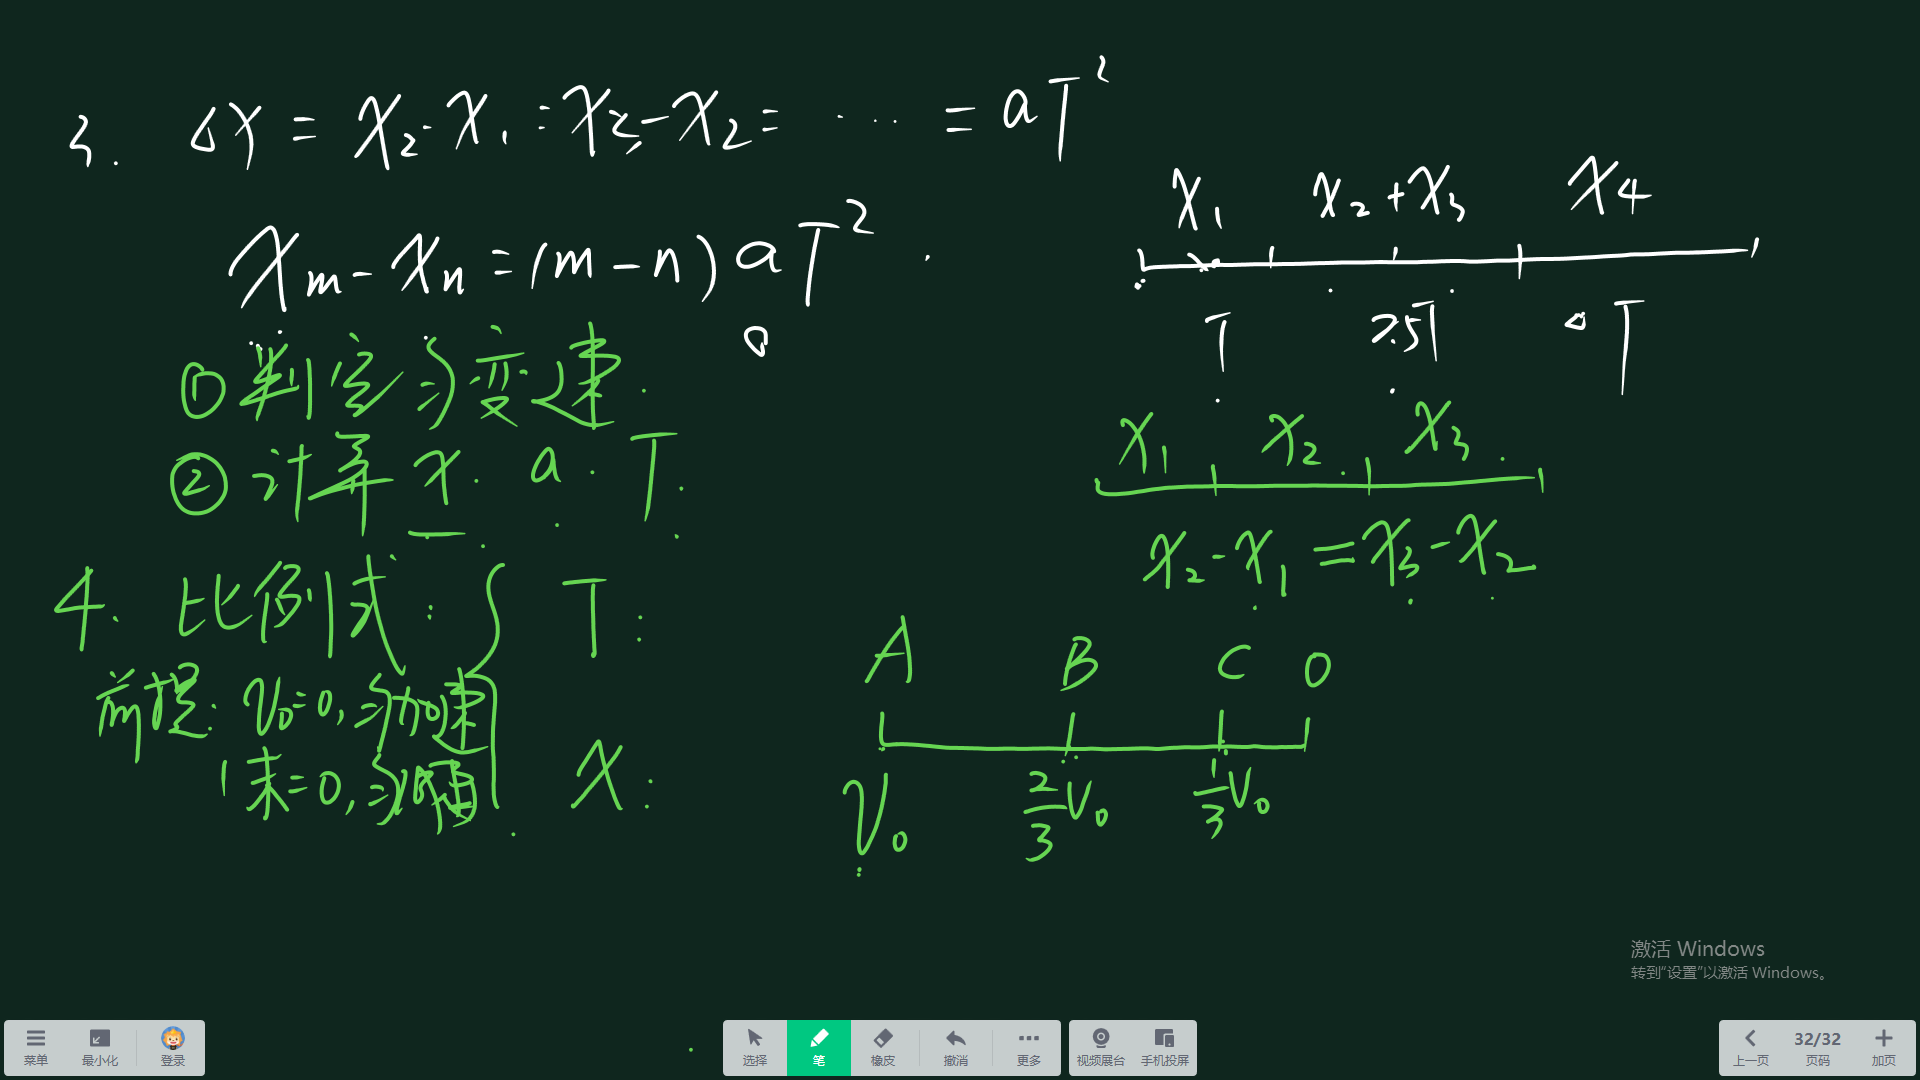 3. ΔX = X₂-X₁=X₃-X₂= ······ = aT²
Xm-Xn=(m-n)aT²
①判定匀变速.
②计算 x. a. T.
4. 比例式: { T:
前提: V₀=0, 匀加速
V末=0, 匀减速
X:
X₁ X₂+X₃ X₄
T T
X₁ X₂ X₃
X₂-X₁=X₃-X₂
A B C O
V₀ 2/3V₀ 1/3V₀
激活 Windows
转到“设置”以激活 Windows。
菜单 最小化 登录 选择 笔 橡皮 撤消 更多 视频展台 手机投屏 上一页 32/32 页码 加页